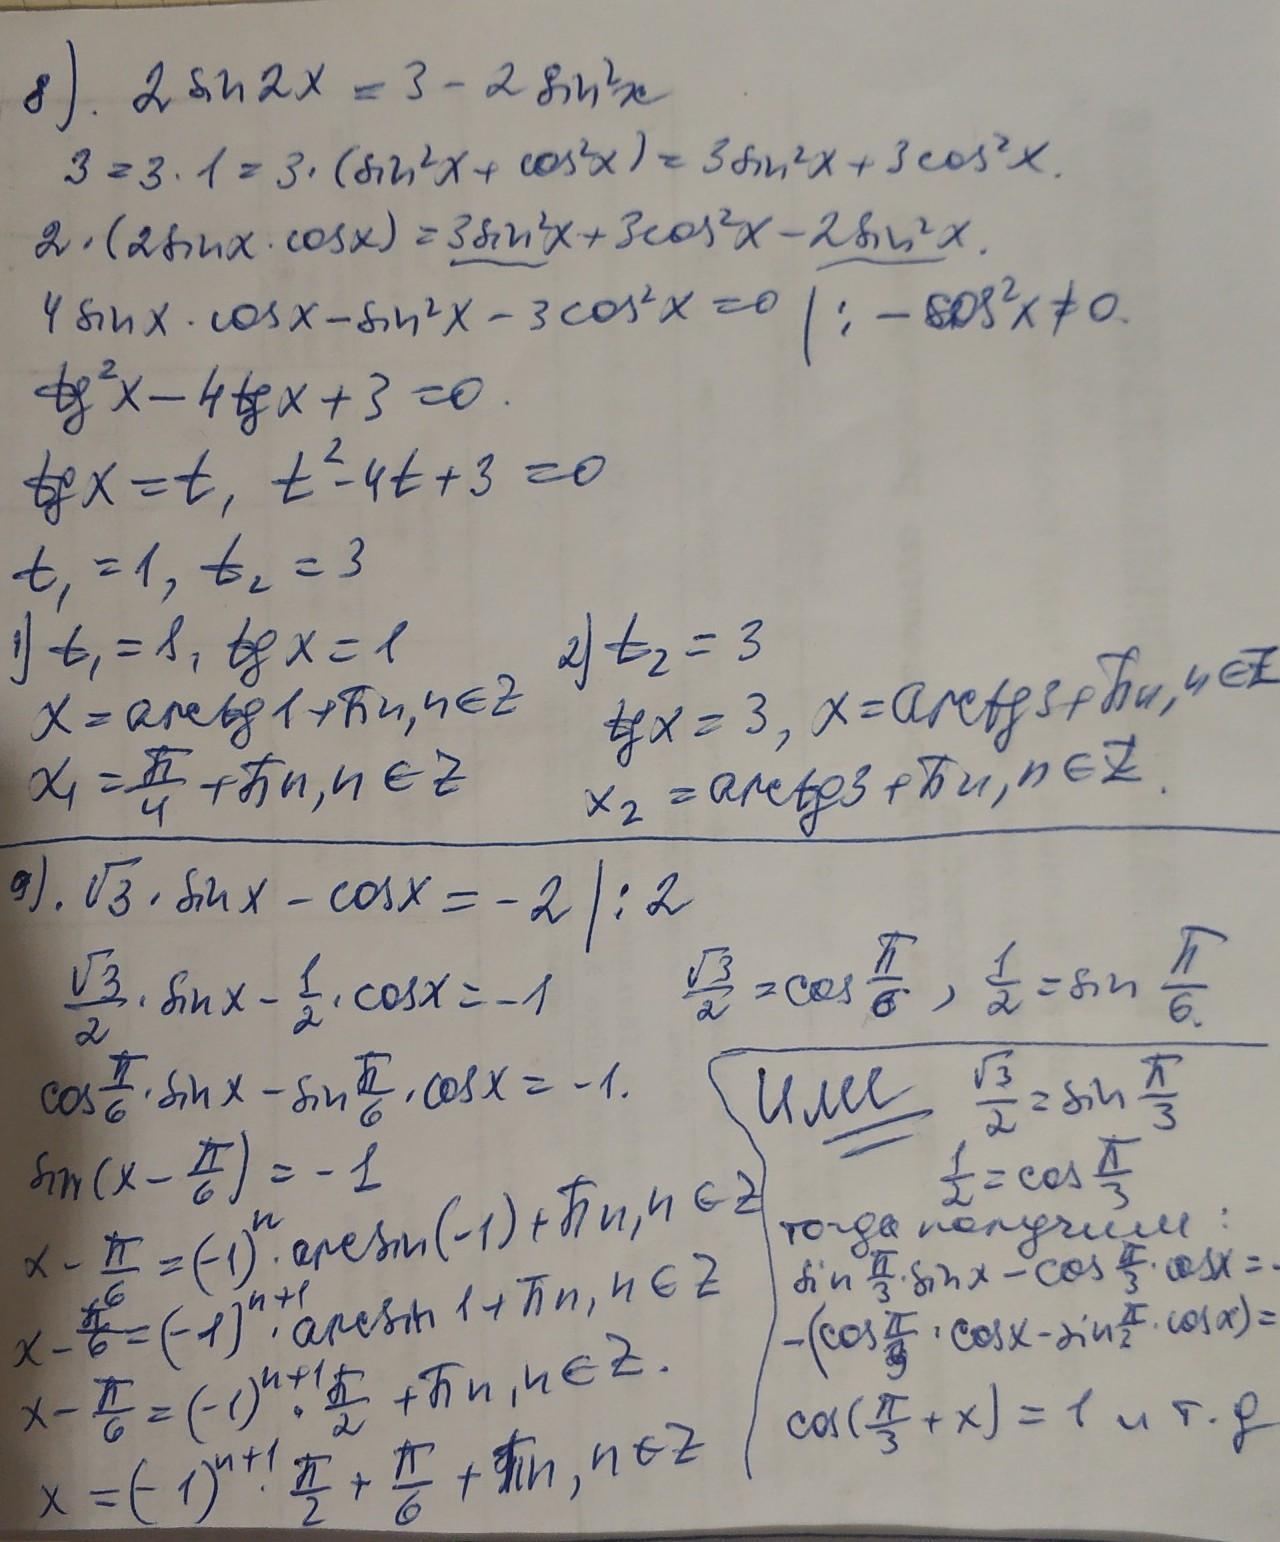 8). 2 sin2x = 3 - 2 sin²x
3 = 3·1 = 3·(sin²x + cos²x) = 3sin²x + 3cos²x.
2·(2sinx·cosx) = 3sin²x + 3cos²x - 2sin²x.
4sinx·cosx - sin²x - 3cos²x = 0 |: -cos²x ≠ 0.
tg²x - 4tgx + 3 = 0.
tgx = t, t² - 4t + 3 = 0
t₁ = 1, t₂ = 3
1) t₁ = 1, tgx = 1
x = arctg1 + πn, n ∈ Z
x₁ = π/4 + πn, n ∈ Z
2) t₂ = 3
tgx = 3, x = arctg3 + πn, n ∈ Z
x₂ = arctg3 + πn, n ∈ Z.
9). √3·sinx - cosx = -2 |: 2
√3/2·sinx - 1/2·cosx = -1
√3/2 = cos π/6, 1/2 = sin π/6.
cos π/6·sinx - sin π/6·cosx = -1.
sin(x - π/6) = -1
x - π/6 = (-1)ⁿ·arcsin(-1) + πn, n ∈ Z
x - π/6 = (-1)ⁿ⁺¹·arcsin1 + πn, n ∈ Z
x - π/6 = (-1)ⁿ⁺¹·π/2 + πn, n ∈ Z.
x = (-1)ⁿ⁺¹·π/2 + π/6 + πn, n ∈ Z
или √3/2 = sin π/3
1/2 = cos π/3
тогда получим:
sin π/3·sinx - cos π/3·cosx = -
-(cos π/3·cosx - sin π/2·cosx) =
cos(π/3 + x) = 1 и т.д